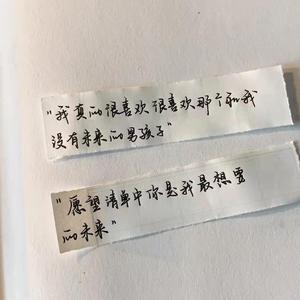 "我真的很喜欢很喜欢那个和我
没有未来的男孩子"
"愿望清单中你是我最想要
的未来"